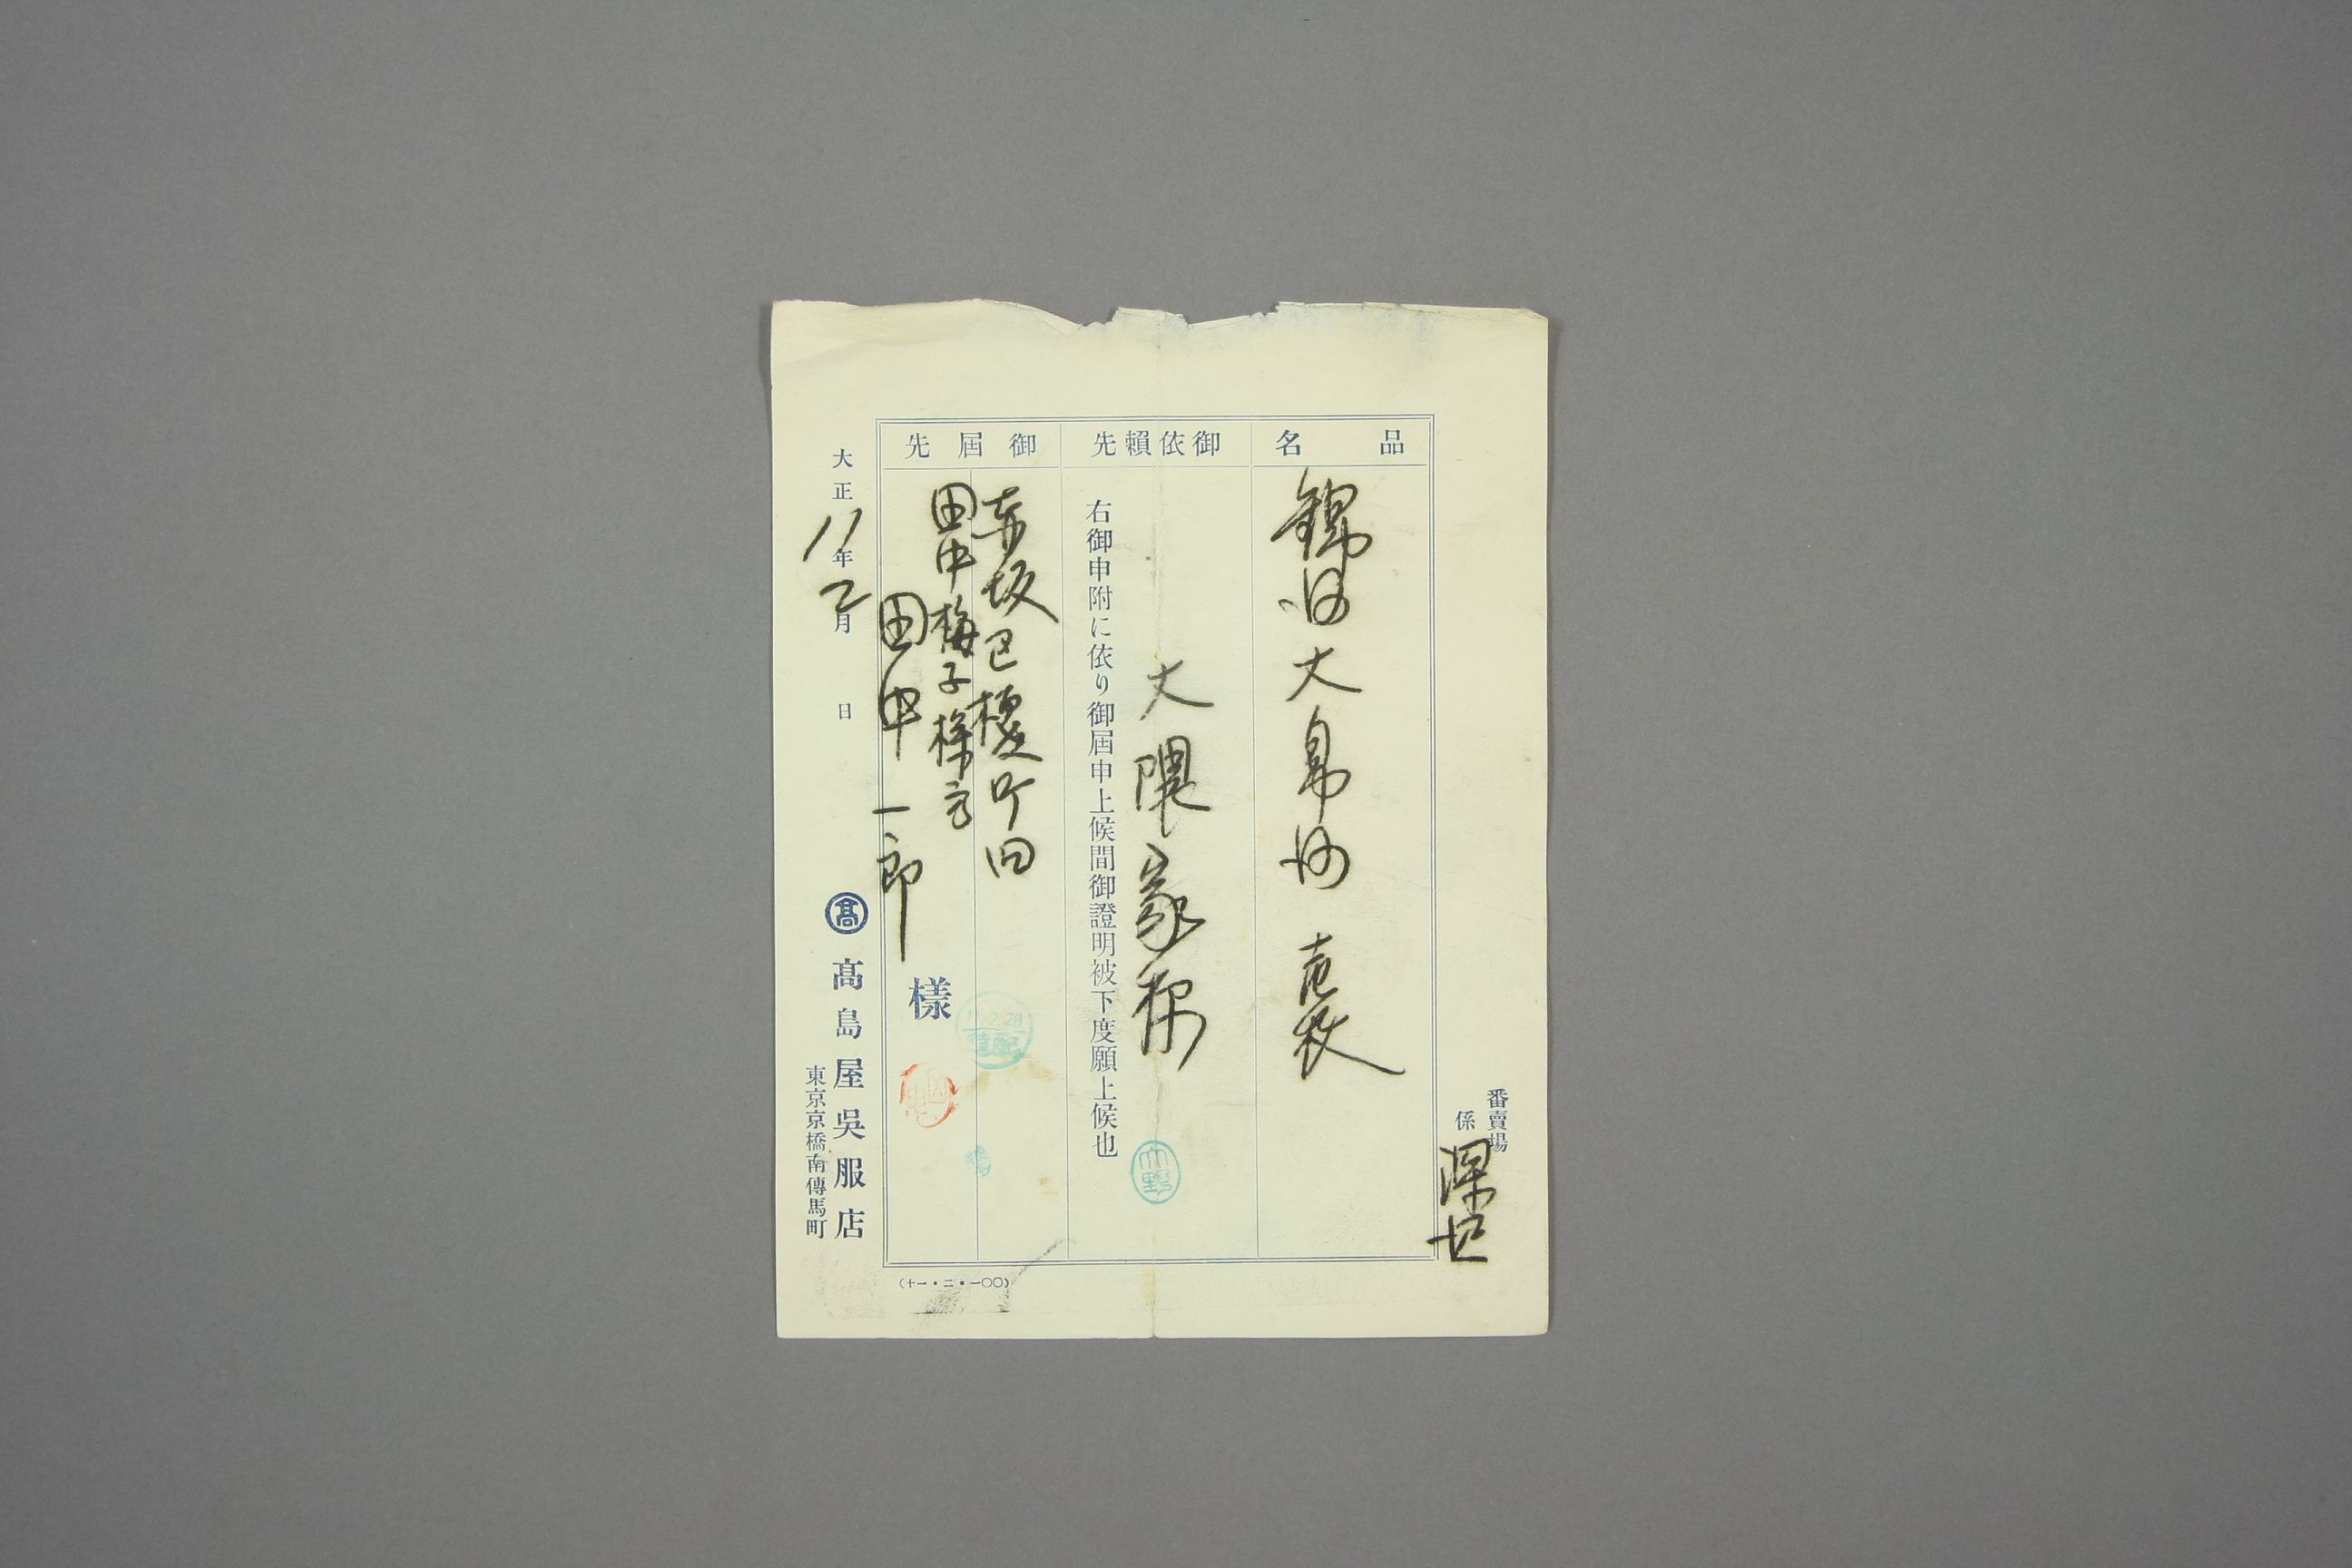 番賣場
係
品名
錦紗大帛紗 壱枚
御依賴先
大隈家様
右御申附に依り御屆申上候間御證明被下度願上候也
大野
御屆先
赤坂区檜町四
田中梅子様方
田中一郎
樣
11.2.28
大正11年2月 日
髙
髙島屋吳服店
東京京橋南傳馬町
(十一・二・一〇〇)